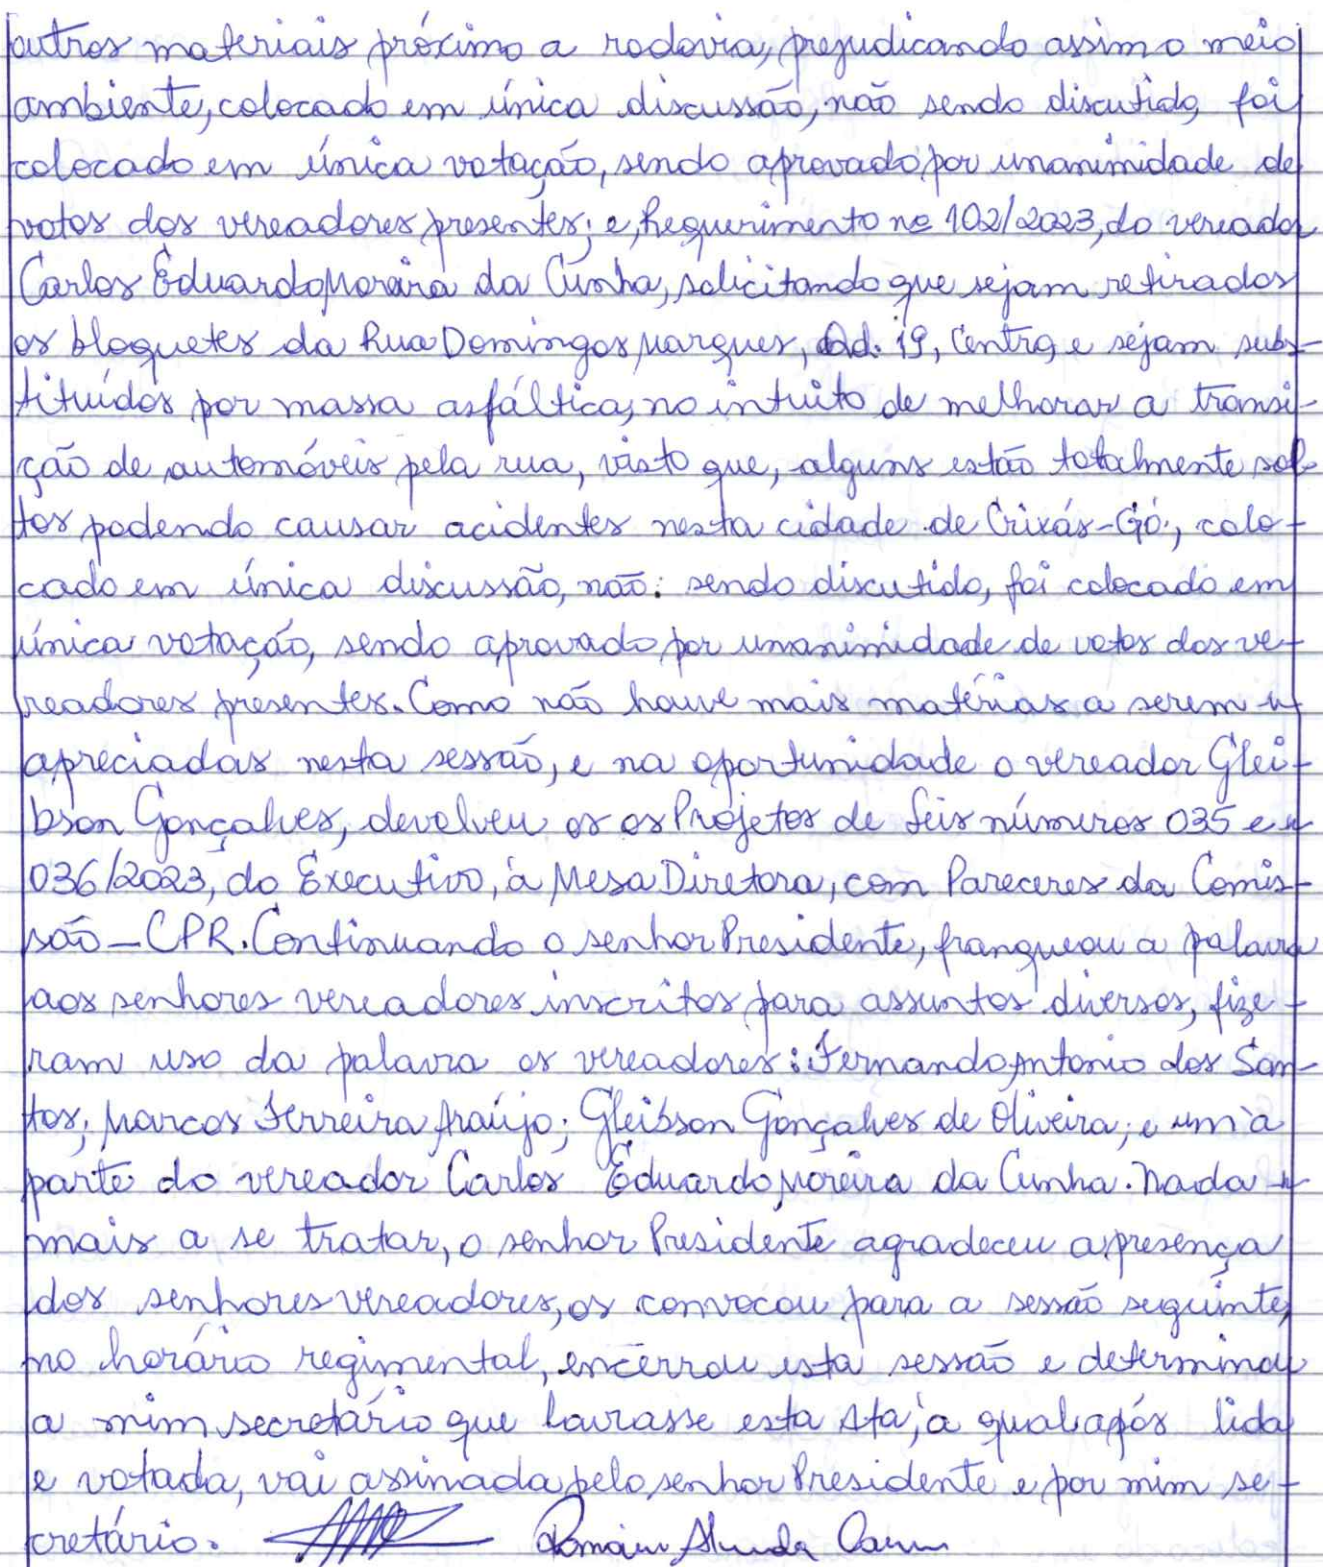 outros materiais próximo a rodovia, prejudicando assim o meio
ambiente, colocado em única discussão, não sendo discutido, foi
colocado em única votação, sendo aprovado por unanimidade de
votos dos vereadores presentes; e, Requerimento nº 102/2023, do vereador
Carlos Eduardo Moreira da Cunha, solicitando que sejam retirados
os bloquetes da Rua Domingos Marques, Qd. 19, Centro, e sejam subs-
tituídos por massa asfáltica, no intuito de melhorar a transi-
ção de automóveis pela rua, visto que, alguns estão totalmente sol-
tos podendo causar acidentes nesta cidade de Crixás-Go, colo-
cado em única discussão, não sendo discutido, foi colocado em
única votação, sendo aprovado por unanimidade de votos dos ve-
readores presentes. Como não houve mais matérias a serem
apreciadas nesta sessão, e na oportunidade o vereador Glei-
bson Gonçalves, devolveu os os Projetos de Leis números 035 e
036/2023, do Executivo, à Mesa Diretora, com Pareceres da Comis-
são - CPR. Continuando o senhor Presidente, franqueou a palavra
aos senhores vereadores inscritos para assuntos diversos, fize-
ram uso da palavra os vereadores: Fernando Antonio dos San-
tos; Marcos Ferreira Araújo; Gleibson Gonçalves de Oliveira; e um à
parte do vereador Carlos Eduardo Moreira da Cunha. Nada
mais a se tratar, o senhor Presidente agradeceu a presença
dos senhores vereadores, os convocou para a sessão seguinte,
no horário regimental, encerrou esta sessão e determinou
a mim secretário que lavrasse esta Ata, a qual após lida
e votada, vai assinada pelo senhor Presidente e por mim se-
cretário.